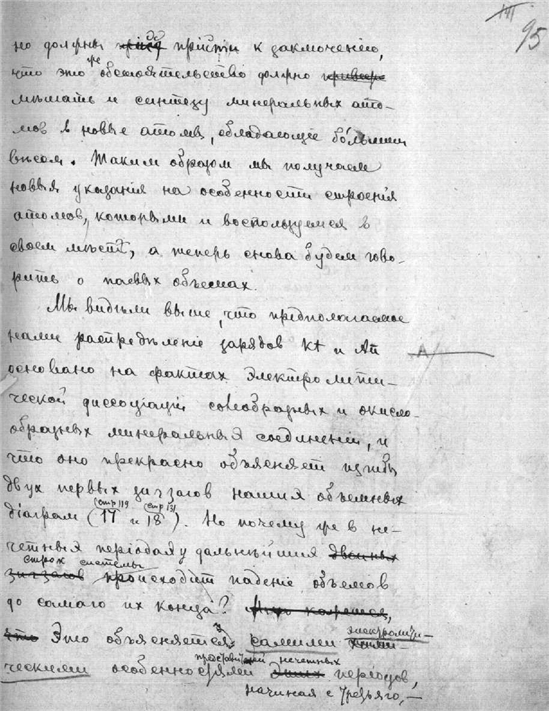 95
но должны прийти к заключенію,
что это же обстоятельство должно
мѣшать и синтезу минеральных ато-
мов в новые атомы, обладающіе большим
вѣсом. Таким образом мы получаем
новыя указанія на особенности строенія
атомов, которыми и воспользуемся в
своем мѣстѣ, а теперь снова будем гово-
рить о паевых объемах.
Мы видѣли выше, что предполагаемое
нами распредѣленіе зарядов Kt и An
основано на фактах электролити-
ческой диссоціаціи солеобразных и окисло-
образных минеральныя соединеній, и
что оно прекрасно объясняет изгибы
двух первых зигзагов наших объемных
діаграм (стр 119 17 и стр 131 18). Но почему же в не-
четных періодах дальнѣйшия двойных
строк системы
зигзагов происходит паденіе объемов
до самаго их конца?
что Это объясняется самими электролити-
ческими особенностями представителей нечетных этих періодов,
начиная с третьяго,—